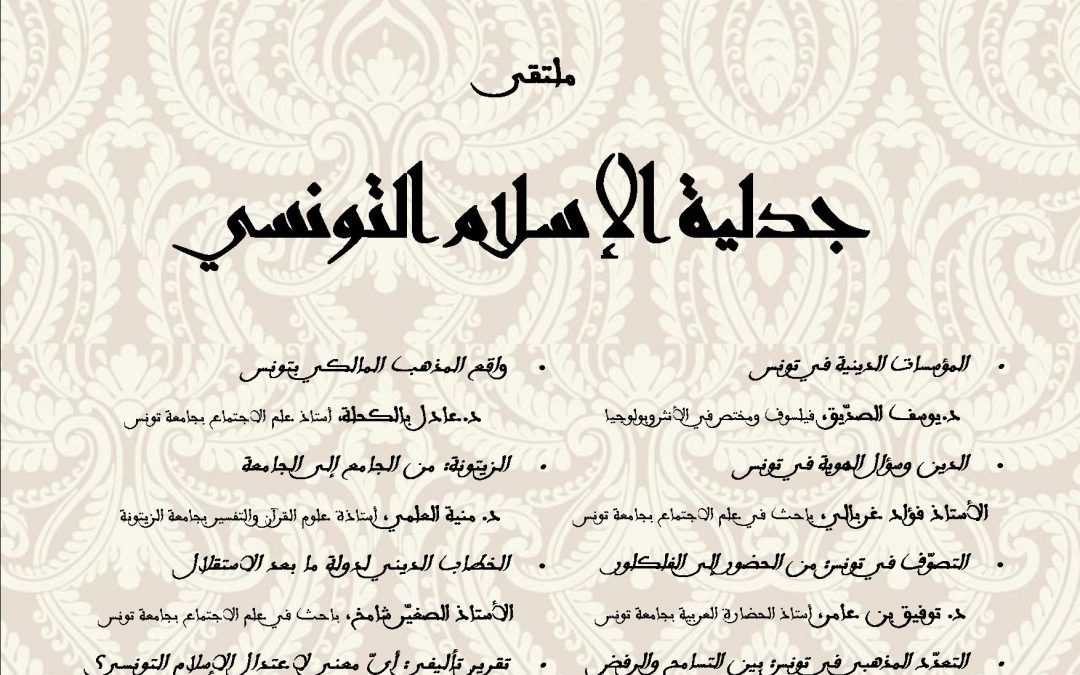 ملتقى
جدلية الإسلام التونسي
• المؤسسات الدينية في تونس
د.يوسف الصدّيق، فيلسوف ومختص في الأنثروبولوجيا
• الدين وسؤال الهوية في تونس
الأستاذ فؤاد غربالي، باحث في علم الاجتماع بجامعة تونس
• التصوّف في تونس: من الحضور إلى الفلكلور
د. توفيق بن عامر، أستاذ الحضارة العربية بجامعة تونس
• التعدّد المذهبي في تونس: بين التسامح والرفض
• واقع المذهب المالكي بتونس
د.عادل بالكحلة، أستاذ علم الاجتماع بجامعة تونس
• الزيتونة: من الجامع إلى الجامعة
د. منية العلمي، أستاذة علوم القرآن والتفسير بجامعة الزيتونة
• الخطاب الديني لدولة ما بعد الاستقلال
الأستاذ الصغيّر شامخ، باحث في علم الاجتماع بجامعة تونس
• تقرير تأليفي: أيّ معنى لاعتدال الإسلام التونسي؟